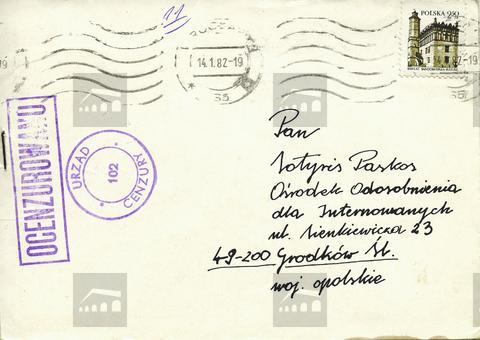 11
POLSKA 9zł
14.1.82-19
14.1.82-19
OCENZUROWANO
URZĄD
102
CENZURY
Pan
Sotyris Paskos
Ośrodek Odosobnienia
dla Internowanych
ul. Sienkiewicza 23
49-200 Grodków Śl.
woj. opolskie